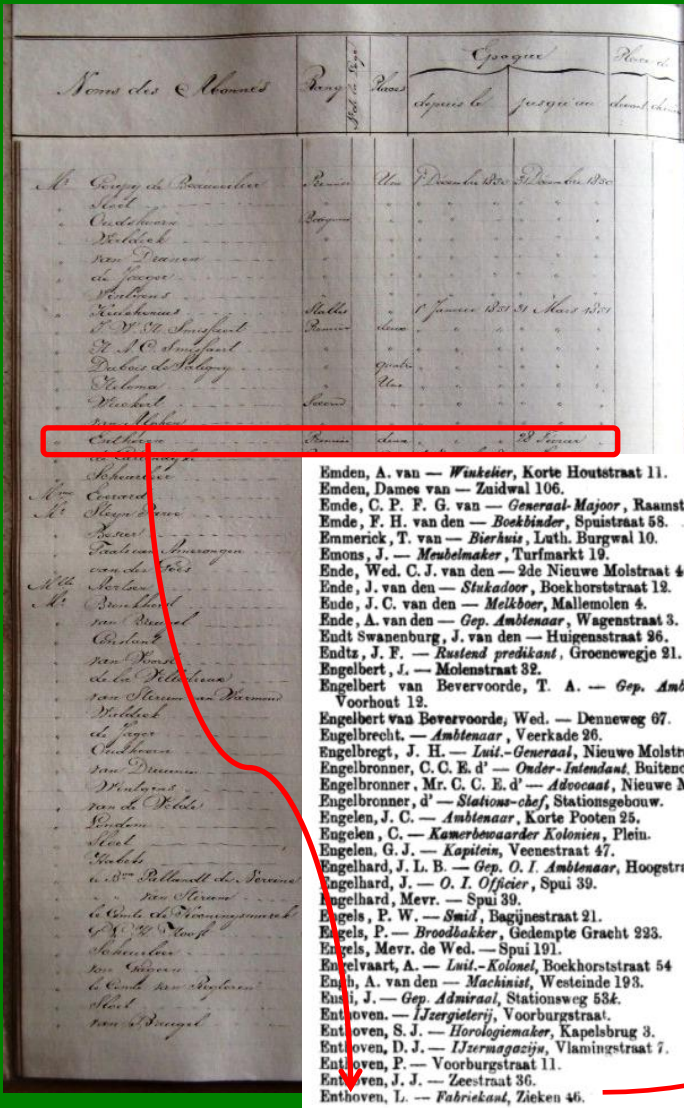 Noms des Abonnés
Rang
Places
Epoque
depuis le
jusqu'au
devant
Mr Goupy de Beauvolier Premier Une 1r Décembre 1850 31 Décembre 1850
Sloet
Oudshoorn Baignoire
Verldick
van Drunen
de Jager
Wintgens
Keuchenius Stalles 1r Janvier 1851 31 Mars 1851
J. W. H. Smissaert Premier deux
H. A. C. Smissaert
Dubois de Saligny quatre
Heloma Une
Second
van Alphen
Enthoven Premier deux 28 Février
Scheurleer
Mme Everard
Mr Steyn Parvé
Besier
Taets van Amerongen
van der Goes
Mlle
Mr Bronkhorst
van Breugel
Constant
de la Villestreux
van Sterum van Warmond
Waldeck
de Jager
Oudshoorn
van Drunen
Wintgens
van de Velde
London
Sloet
Habets
le Bon Pallandt de Neerçine
van Sterum
le Comte de Koenigsmarck
Hooft
Scheurleer
von Gagern
le Comte van Regteren
Sloet
van Breugel
Emden, A. van — Winkelier, Korte Houtstraat 11.
Emden, Dames van — Zuidwal 106.
Emde, C. P. F. G. van — Generaal-Majoor, Raamst
Emde, F. H. van den — Boekbinder, Spuistraat 58.
Emmerick, T. van — Bierhuis, Luth. Burgwal 10.
Emons, J. — Meubelmaker, Turfmarkt 19.
Ende, Wed. C. J. van den — 2de Nieuwe Molstraat 4
Ende, J. van den — Stukadoor, Boekhorststraat 12.
Ende, J. C. van den — Melkboer, Mallemolen 4.
Ende, A. van den — Gep. Ambtenaar, Wagenstraat 3.
Endt Swanenburg, J. van den — Huigensstraat 26.
Endtz, J. F. — Rustend predikant, Groenewegje 21.
Engelbert, J. — Molenstraat 32.
Engelbert van Bevervoorde, T. A. — Gep. Amb
Voorhout 12.
Engelbert van Bevervoorde, Wed. — Denneweg 67.
Engelbrecht. — Ambtenaar, Veerkade 26.
Engelbregt, J. H. — Luit.-Generaal, Nieuwe Molstr
Engelbronner, C. C. E. d' — Onder-Intendant, Buitenc
Engelbronner, Mr. C. C. E. d' — Advocaat, Nieuwe M
Engelbronner, d' — Stations-chef, Stationsgebouw.
Engelen, J. C. — Ambtenaar, Korte Pooten 25.
Engelen, C. — Kamerbewaarder Kolonien, Plein.
Engelen, G. J. — Kapitein, Veenestraat 47.
Engelhard, J. L. B. — Gep. O. I. Ambtenaar, Hoogstra
Engelhard, J. — O. I. Officier, Spui 39.
Engelhard, Mevr. — Spui 39.
Engels, P. W. — Smid, Bagijnestraat 21.
Engels, P. — Broodbakker, Gedempte Gracht 223.
Engels, Mevr. de Wed. — Spui 191.
Engelvaart, A. — Luit.-Kolonel, Boekhorststraat 54
Engh, A. van den — Machinist, Westeinde 193.
Ensli, J. — Gep. Admiraal, Stationsweg 53k.
Enthoven. — IJzergieterij, Voorburgstraat.
Enthoven, S. J. — Horologiemaker, Kapelsbrug 3.
Enthoven, D. J. — IJzermagazijn, Vlamingstraat 7.
Enthoven, P. — Voorburgstraat 11.
Enthoven, J. J. — Zeestraat 36.
Enthoven, L. — Fabriekant, Zieken 46.